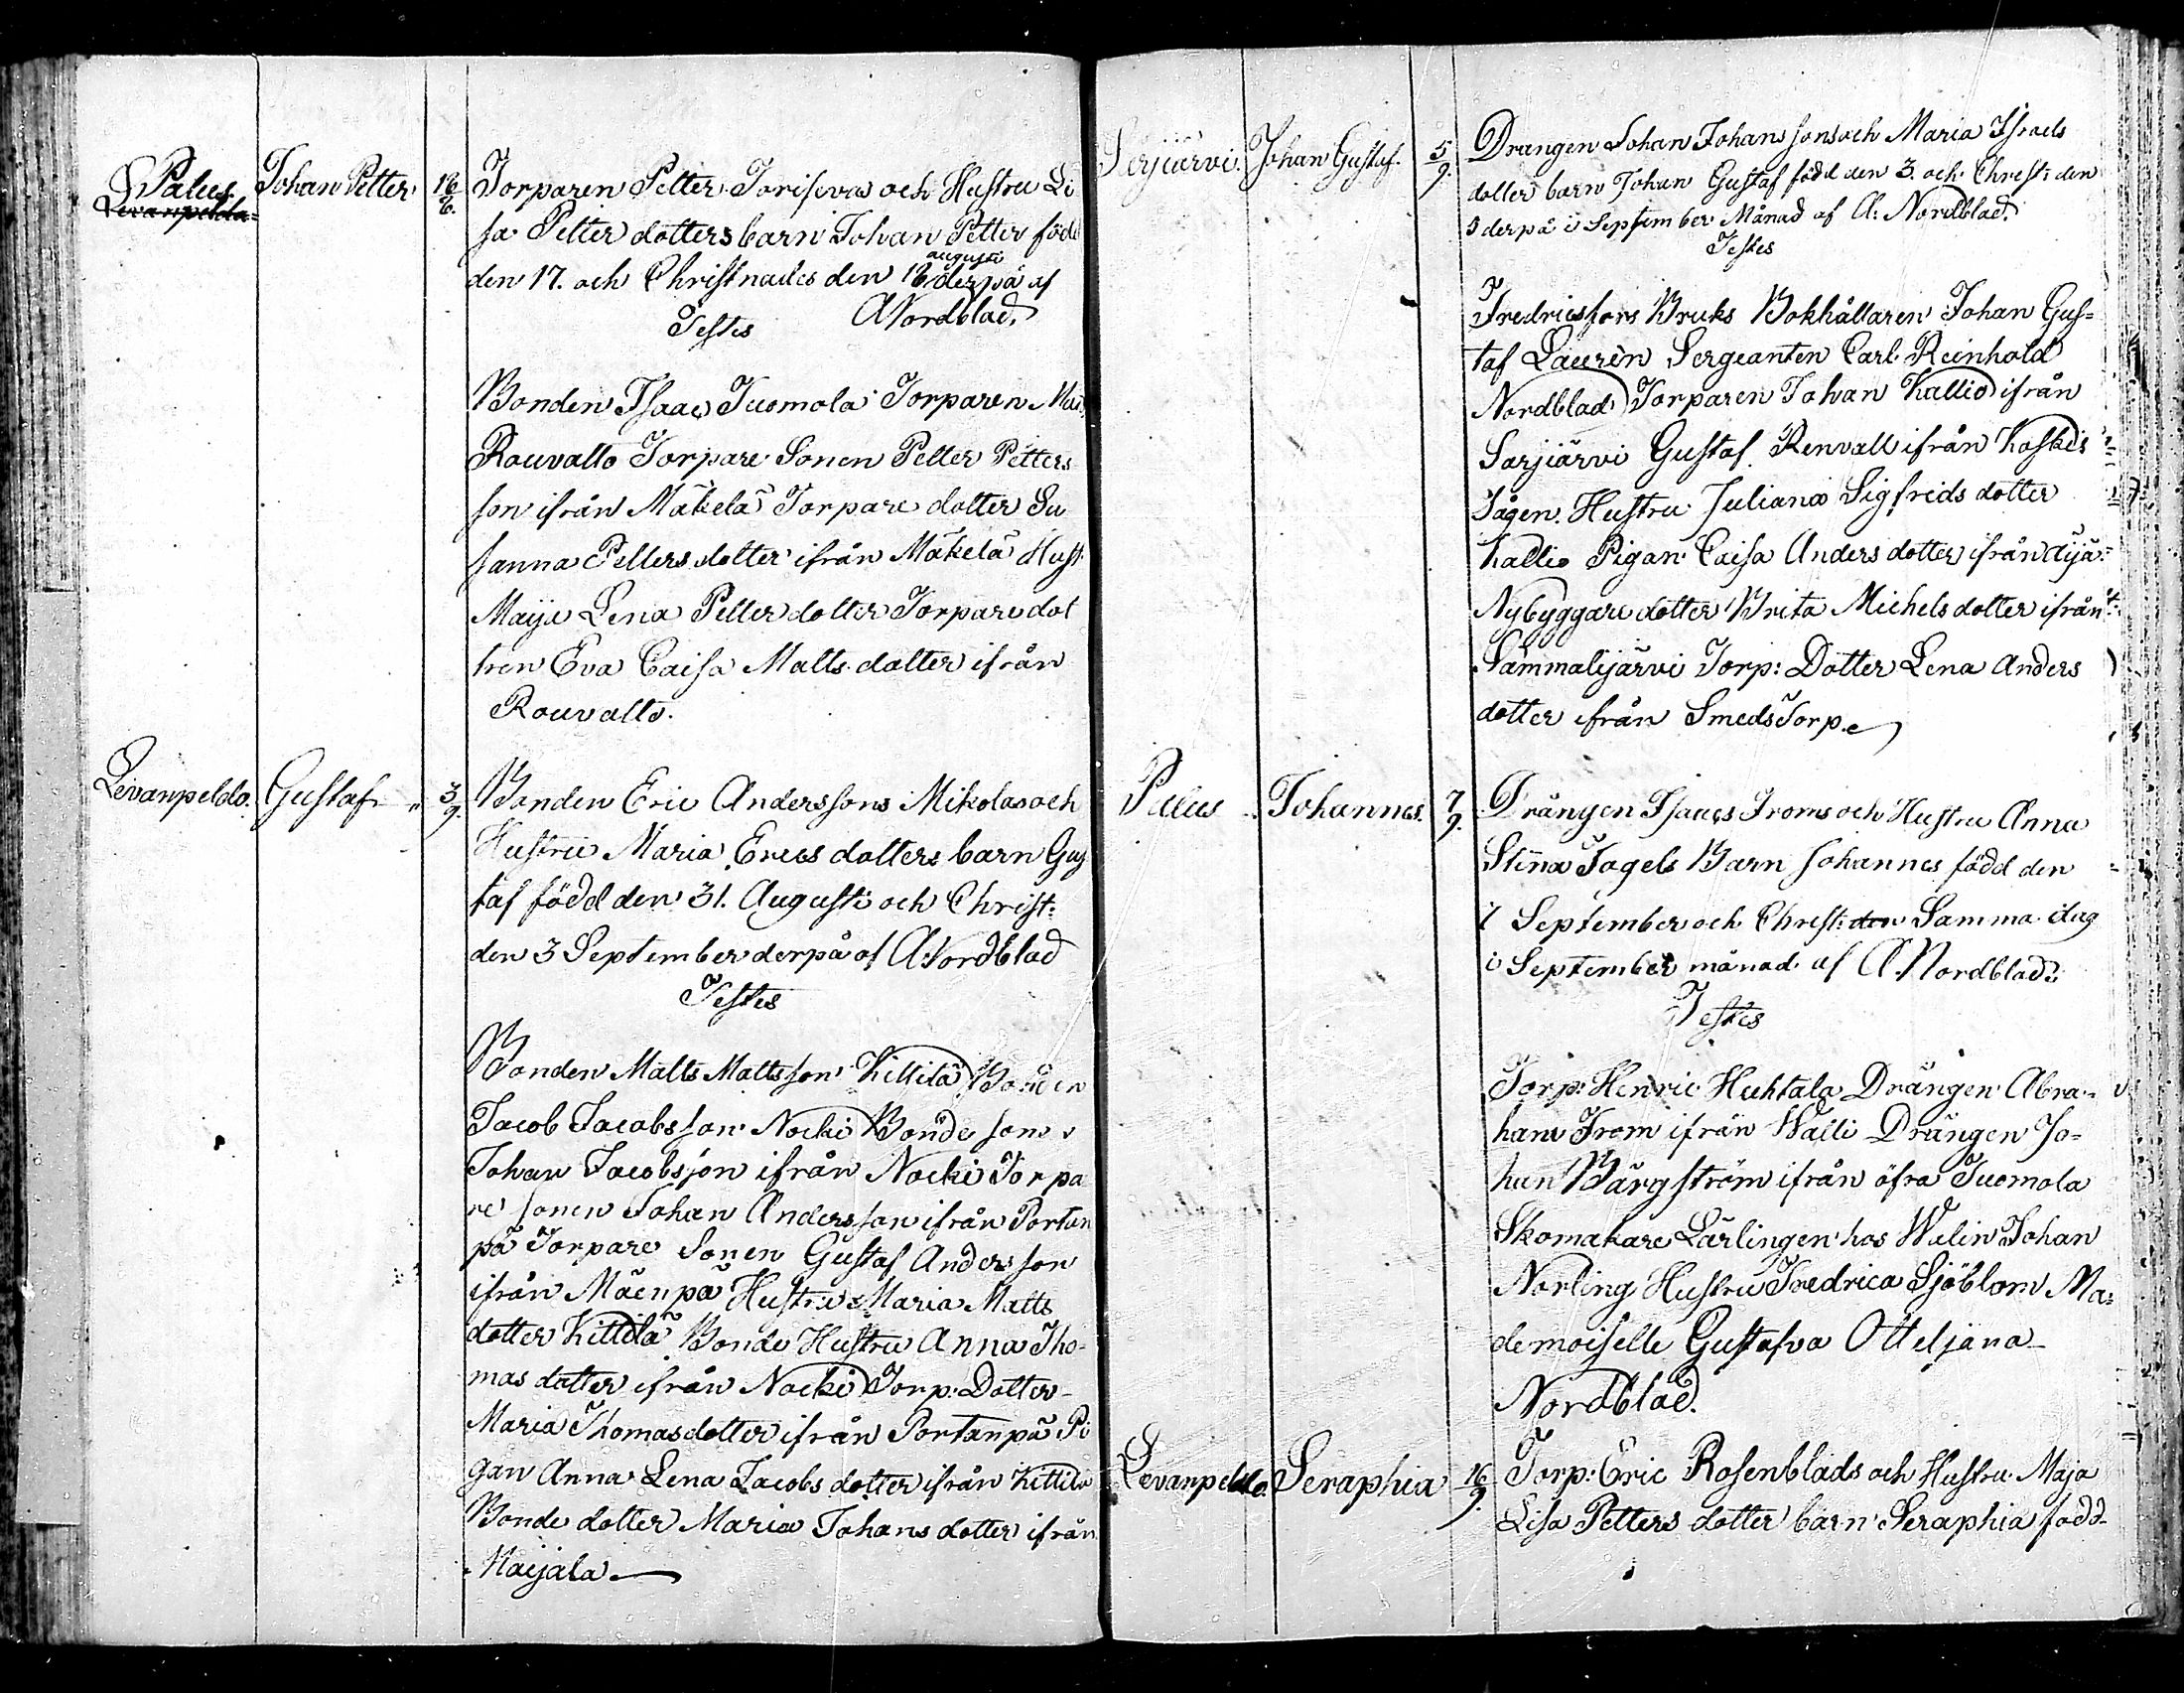 Palus
Levanpelda
Johan Petter
18
8.
Torparen Petter Torisevas och Hustru Li
sa Petter dotters barn Johan Petter född
augusti
den 17. och Christnades den 18 derpå af
ANordblad.
Testes
Bonden Isaac Tuomola Torparen
Rouvalto Torpare Sonen Petter Petters
son ifrån Mäkelä Torpare dotter Su
sanna Petters dotter ifrån Mäkelä Hust.
Maija Lena Petter dotter Torpare dot
tren Eva Caisa Matts dotter ifrån
Rouvalto.
Levanpeldo.
Gustaf
3
9.
Bonden Eric Anderssons Mikolas och
Hustru Maria Erics dotters barn Gus
taf född den 31. Augusti och Christ:
den 3 September derpå af A. Nordblad
Testes
Bonden Matts Mattsson Kittilä Bonden
Jacob Jacobsson Nocki Bonde son
Johan Jacobsson ifrån Nocki Torpa
re sonen Johan Andersson ifrån Portan
pä Torpare Sonen Gustaf Andersson
ifrån Mäenpä Hustru Maria Matts
dotter Kittilä Bonde Hustru Anna Tho-
mas dotter ifrån Nocki Torp. Dotter
Maria Thomasdotter ifrån Portanpä Pi
gan Anna Lena Jacobs dotter ifrån Kittilä
Bonde dotter Maria Johans dotter ifrån
Naijala
Serjiärvi.
Johan Gustaf.
5
9.
Drangen Johan Johans sons och Maria Israels
dotter barn Johan Gustaf född den 3. och Christ: den
5 derpå i September Månad af A: Nordblad.
Testes
Fredricsfors Bruks Bokhållaren Johan Gus=
taf Laurèn Sergeanten Carl Reinhold
Nordblad Torparen Johan Kallio ifrån
Sarjiärvi Gustaf Renvall ifrån Koskis
Sågen. Hustru Juliana Sigfreds dotter
Kallio Pigan Caisa Anders dotter ifrån
Nybyggare dotter Brita Michels dotter ifrån
Sammalijärvi Torp: Dotter Lena Anders
dotter ifrån SmedsTorp.
Palus
Johannes.
7
9.
Drängen Isaacs Froms och Hustru Anna
Stina Fagels Barn Johannes född den
7 September och Christ: den Samma dag
i September månad af A. Nordblad.
Testes
Torp: Henric Huhtala Drängen Abra-
ham From ifrån Walli Drängen Jo=
han Bärgström ifrån öfra Tuomola
Skomakare Lärlingen hos Walin Johan
Norling Hustru Fredrica Sjöblom Ma=
demoiselle Gustafva Otteljana
Nordblad.
Levanpeldo.
Seraphia
16
9.
Torp: Eric Rosenblads och Hustru Maja
Lisa Petters dotter barn Seraphia född